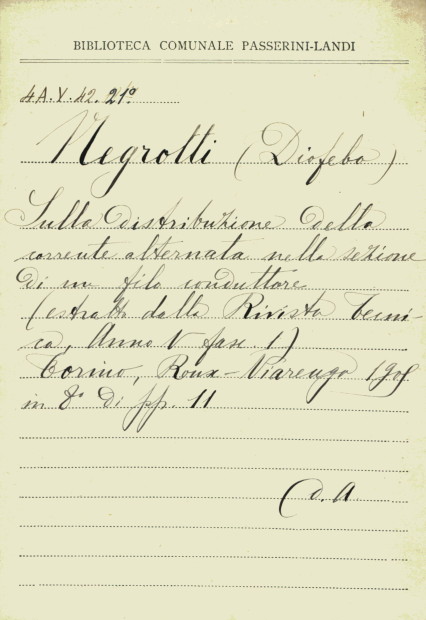 BIBLIOTECA COMUNALE PASSERINI-LANDI
4A.V.42.21º
Negrotti (Diofebo)
Sulla distribuzione della
corrente alternata nella sezione
di un filo conduttore
(estratto dalla Rivista Tecni-
ca, Anno V fasc. 1)
Torino, Roux-Viarengo 1905
in 8º di pp. 11
(d. A.